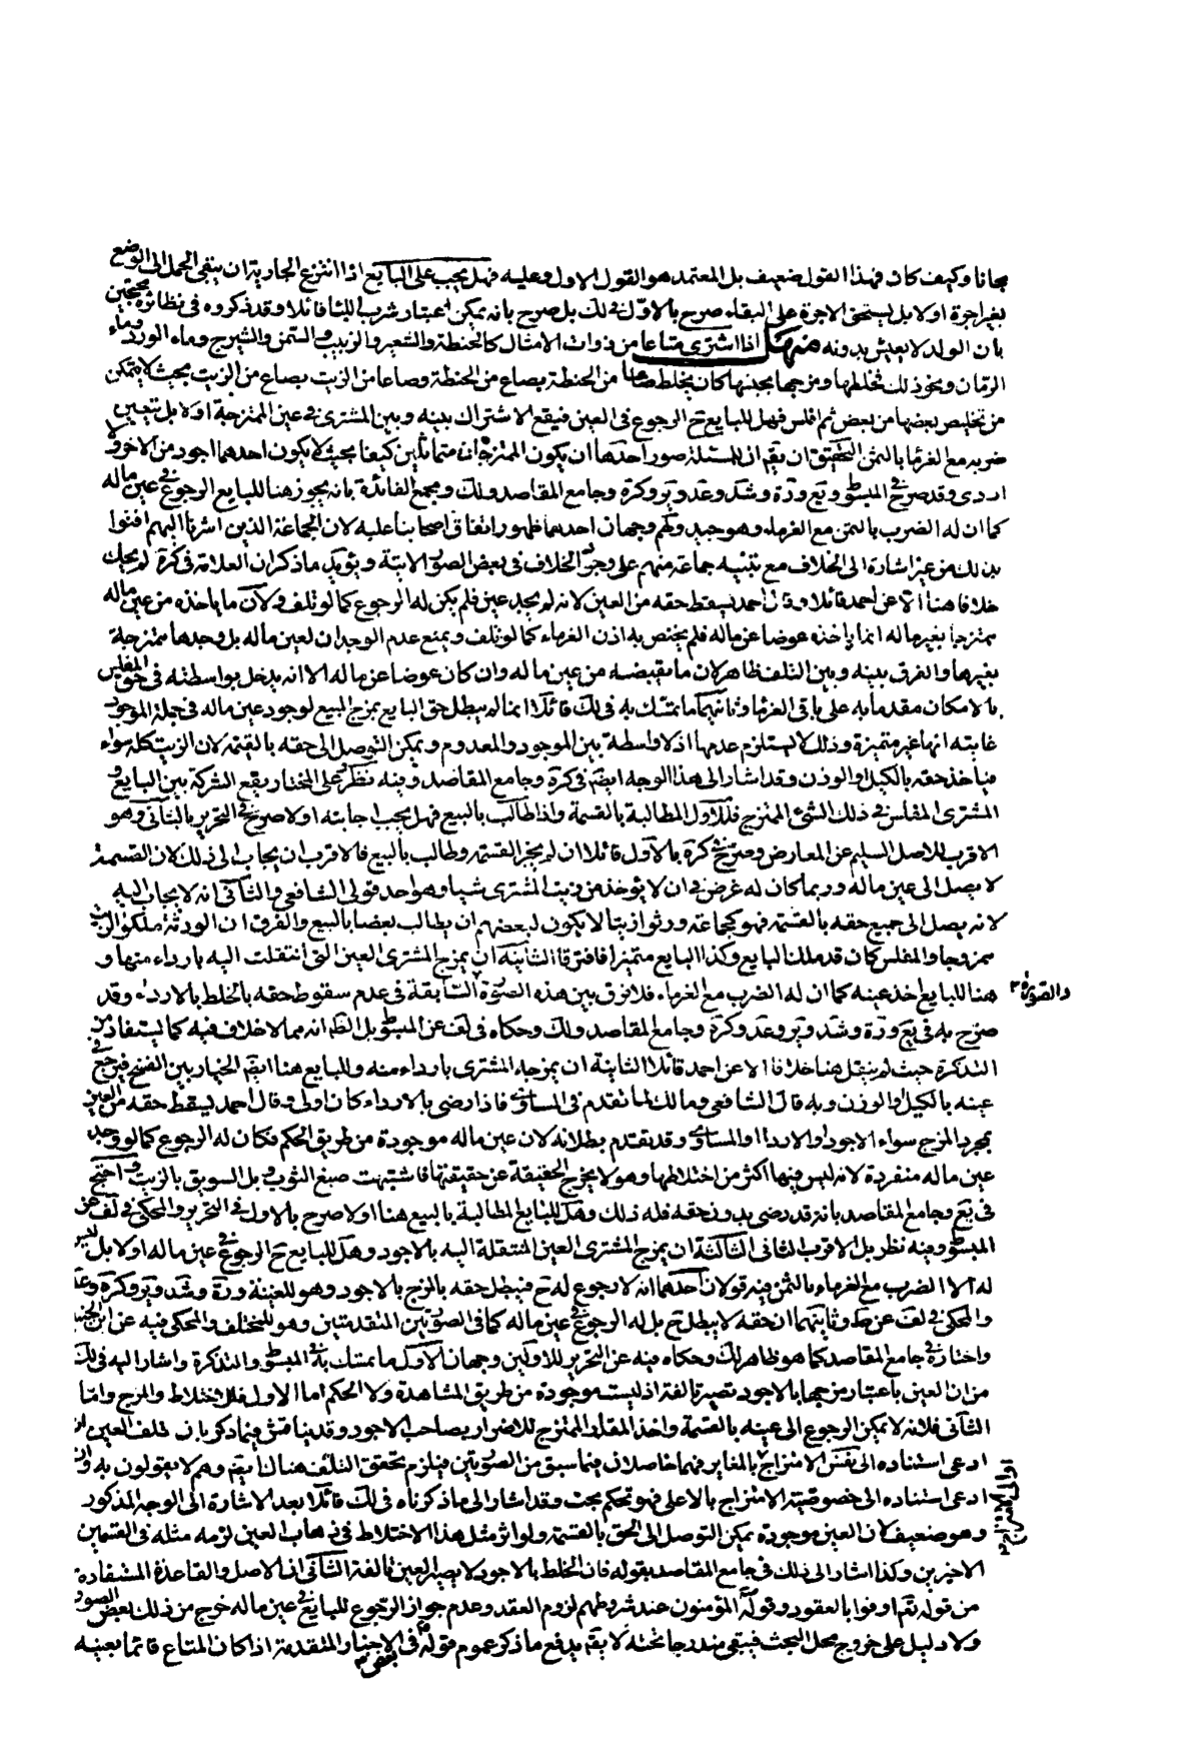 مجانا وكيف كان فهذا القول ضعيف بل المعتمد هو القول الاول وعليه فهل يجب على البايع اذا انتزع الجارية ان يبقى الحمل الى الوضع
بغير اجرة او لا بل يستحق الاجرة على البقاء صرح بالاول في لك بل صرح بانه يمكن اعتبار شرب اللبا قائلا وقد ذكروه في نظائره محتجين
بان الولد لا يعيش بدونه منها اذا اشترى متاعا من ذوات الامثال كالحنطة والشعير والزبيب والسمن والشيرج وماء الورد وماء
الرمان ونحو ذلك فخلطها ومزجها بجنسها كان يخلط صاعا من الحنطة بصاع من الحنطة وصاعا من الزيت بصاع من الزيت بحيث لا يتمكن
من تخليص بعضها من بعض ثم افلس فهل للبايع ح الرجوع في العين فيقع الاشتراك بينه وبين المشترى في عين الممتزجة او لا بل تعين
ضربه مع الغرماء بالثمن التحقيق ان يقم ان للمسئلة صور احدها ان يكون الممتزجان متماثلين كيفا بحيث لا يكون احدهما اجود من الاخر ولا
اردى وقد صرح في المبسوط ويع ورة وشد وعد وير وكرة وجامع المقاصد ولك ومجمع الفائدة بانه يجوز هنا للبايع الرجوع في عين ماله
كما ان له الضرب بالثمن مع الغرماء وهو جيد ولهم وجهان احدهما ظهور اتفاق اصحابنا عليه لان الجماعة الذين اشرنا اليهم افتوا
بذلك من غير اشارة الى الخلاف مع تنبيه جماعة منهم على وجود الخلاف في بعض الصور الاتية ويؤيد ما ذكر ان العلامة في كرة لم يحك
خلافا هنا الا عن احمد قائلا وقال احمد يسقط حقه من العين لانه لم يجد عين فلم يكن له الرجوع كما لو تلف ولان ما ياخذه من عين ماله
ممتزجا بغير ماله انما ياخذه عوضا عن ماله فلم يختص به اذن الغرماء كما لو تلف ويمنع عدم الوجدان لعين ماله بل وجدها ممتزجة
بغيرها والفرق بينه وبين التلف ظاهر لان ما يقبضه من عين ماله وان كان عوضا عن ماله الا انه يدخل بواسطته في حق المفلس
بالامكان مقدما به على باقي الغرماء وثانيهما ما تمسك به في لك قائلا انما لم يبطل حق البايع بمزج المبيع لوجود عين ماله في جملة الموجود
غايته انها غير متميزة وذلك لا يستلزم عدمها اذ لا واسطة بين الموجود والمعدوم ويمكن التوصل الى حقه بالقسمة لان الزيت كله سواء
فياخذ حقه بالكيل او الوزن وقد اشار الى هذا الوجه ايضم في كرة وجامع المقاصد وفيه نظر وعلى المختار يقع الشركة بين البايع و
المشترى المفلس في ذلك الشيء الممتزج فللاول المطالبة بالقسمة واذا طالب بالبيع فهل يجب اجابته او لا صرح في التحرير بالثاني وهو
الاقرب للاصل السليم عن المعارض وصرح في كرة بالاول قائلا ان لم يجز القسمة وطالب بالبيع فالاقرب ان يجاب الى ذلك لان القسمة
لا يصل الى عين ماله وربما كان له غرض في ان لا يؤخذ من زيت المشترى شيا وهو احد قولى الشافعي والثاني انه لا يجاب اليه
لانه يصل الى جميع حقه بالقسمة فهو كجماعة ورثوا زيتا لا يكون لبعضهم ان يطالب بعضا بالبيع والفرق ان الورثة ملكوا الزيت
ممزوجا والمفلس كان قد ملك البايع وكذا البايع متميزا فافترقا الثانية ان يمزج المشترى العين التي انتقلت اليه بارداء منها و
هنا للبايع اخذ عينه كما ان له الضرب مع الغرماء فلا فرق بين هذه الصورة السابقة في عدم سقوط حقه بالخلط بالارداء وقد
والصورة
صرح به في يع ورة وشد وير وعد وكرة وجامع المقاصد ولك وحكاه في لف عن المبسوط بل الظ انه مما لا خلاف فيه كما يستفاد من
التذكرة حيث لم ينقل هنا خلافا الا عن احمد قائلا الثانية ان يمزجه المشترى بارداء منه وللبايع هنا ايضم الخيار بين الفسخ فيرجع في
عينه بالكيل او الوزن وبه قال الشافعي ومالك لما تقدم في المساوي فاذا رضى بالارداء كان اولى وقال احمد يسقط حقه من العين
بمجرد المزج سواء الاجود او الاردا او المساوي وقد تقدم بطلانه لان عين ماله موجودة من طريق الحكم فكان له الرجوع كما لو وجد
عين ماله منفردة لانه ليس فيها اكثر من اختلاطها وهو لا يخرج الحقيقة عن حقيقتها فاشبهت صبغ الثوب بل السويق بالزيت واحتج
في يع وجامع المقاصد بانه قد رضى بدون حقه فله ذلك وهل للبايع المطالبة بالبيع هنا او لا صرح بالاول في التحرير والمحكي في لف عن
المبسوط وفيه نظر بل الاقرب الثاني الثالثة ان يمزج المشترى العين المنتقلة اليه بالاجود وهل للبايع ح الرجوع في عين ماله او لا بل ليس
له الا الضرب مع الغرماء بالثمن فيه قولان احدهما انه لا رجوع له ح فيبطل حقه بالمزج بالاجود وهو للغنية ورة وشد وير وكرة وعد
والمحكي في لف عن ط وثانيهما ان حقه لا يبطل ح بل له الرجوع في عين ماله كما في الصورتين المتقدمتين وهو للمختلف والمحكي فيه عن ابن الجنيد
واختاره في جامع المقاصد كما هو ظاهر لك وحكاه فيه عن التحرير للاولين وجهان الاول ما تمسك به في المبسوط والتذكرة واشار اليه في لك
من ان العين باعتبار مزجها بالاجود تصير تالفة اذ ليست موجودة من طريق المشاهدة ولا الحكم اما الاول فللاختلاط والمزج واما
الثاني فلانه لا يمكن الرجوع الى عينه بالقسمة واخذ المقدار الممتزج للاضرار بصاحب الاجود وقد يناقش فيما ذكر بان تلف العين ان
ادعى استناده الى نفس الامتزاج بالمغاير فهما حاصلان فيما سبق من الصورتين فيلزم تحقق التلف هناك ايضم وهم لا يقولون به وان
ادعى استناده الى خصوصية الامتزاج بالاعلى فهو تحكم بحت وقد اشار الى ما ذكرناه في لك قائلا بعد الاشارة الى الوجه المذكور
وهو ضعيف لان العين موجودة يمكن التوصل الى الحق بالقسمة ولو اثر مثل هذا الاختلاط في ذهاب العين لزمه مثله في القسمين
الاخيرين وكذا اشار الى ذلك في جامع المقاصد بقوله فان الخلط بالاجود لا يصير العين تالفة الثاني ان الاصل والقاعدة المستفادة
من قوله تعم اوفوا بالعقود وقوله المؤمنون عند شروطهم لزوم العقد وعدم جواز الرجوع للبايع في عين ماله خرج من ذلك بعض الصور
ولا دليل على خروج محل البحث فيبقى مندرجا تحته لا يقم يدفع ما ذكر عموم قوله في الاخبار المتقدمة اذا كان المتاع قائما بعينه
بعض